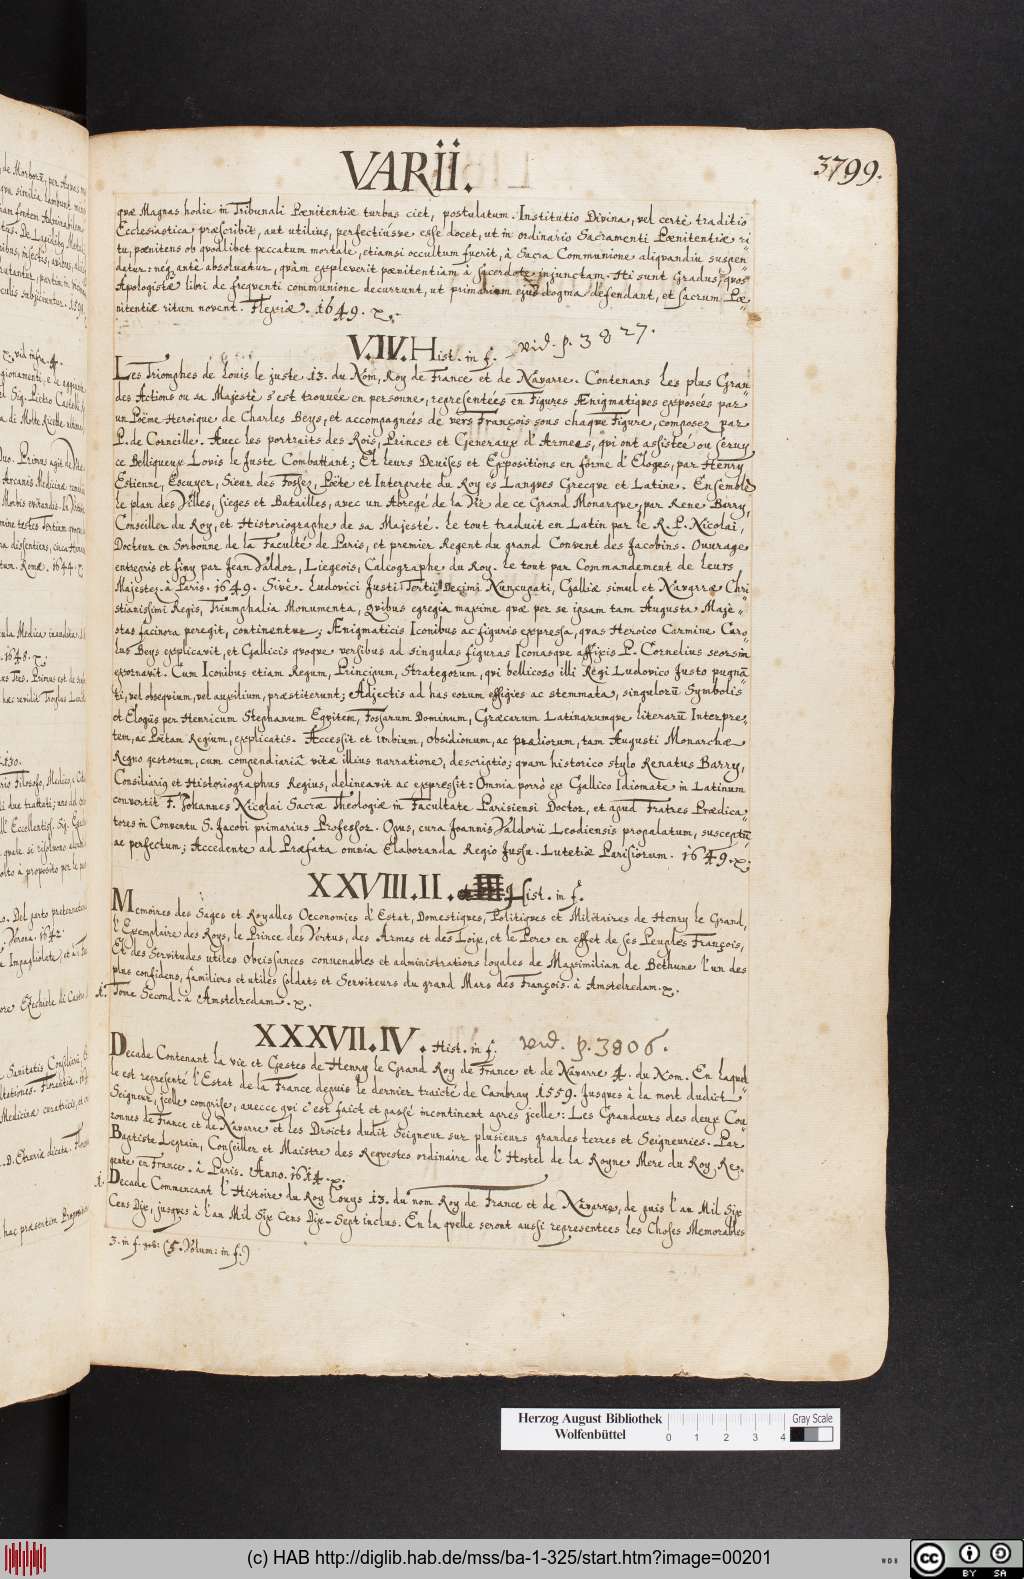 VARII.
3799.
quæ Magnas hodie in Tribunali Pœnitentiæ turbas ciet, postulatum. Institutio Divina, vel certè traditio
Ecclesiastica præscribit, aut utilius, perfectiusve esse docet, ut in ordinario Sacramenti Pœnitentiæ ri„
tu, pœnitens ob quodlibet peccatum mortale, etiamsi occultum fuerit, à Sacra Communione aliquandiu suspen„
datur: neq, antè absoluatur, quàm expleverit pœnitentiam à sacerdote injunctam. Hi sunt Gradus, quos
Apologistæ libri de frequenti communione decurrunt, ut primarium ejus dogma defendant, et sacrum Pœ„
nitentiæ ritum novent. Flexiæ. 1649. x.
V.IV. Hist. in f. vid. p. 3827.
Les Triomphes de Louis le juste 13. du Nom, Roy de France et de Navarre. Contenans les plus Gran
des Actions ou sa Majesté s'est trouuée en personne, representées en Figures Ænigmatiques exposées par
un Poëme Heroique de Charles Beys, et accompagnées de vers François sous chaque Figure, composez par
P. de Corneille. Auec les portraits des Rois, Princes et Generaux d'Armees, qui ont assistée ou seruy
ce Belliqueux Lovis le Juste Combattant; Et leurs Deuises et Expositions en forme d'Eloges, par Henry
Estienne, Escuyer, Sieur des Fossez, Poëte et Interprete du Roy és Langues Grecque et Latine. Ensemble
le plan des Villes, sieges et Batailles, avec un Abregé de la Vie de ce Grand Monarque, par René Barry,
Conseiller du Roy, et Historiographe de sa Majesté. Le tout traduit en Latin par le R. P. Nicolai,
Docteur en Sorbonne de la Faculté de Paris, et premier Regent du grand Convent des Jacobins. Ouurage
entrepris et finy par Jean Valdor, Liegeois, Calcographe du Roy. Le tout par Commandement de leurs
Majestez. à Paris. 1649. Sive. Ludovici Justi Tertii Decimi Nuncupati, Galliæ simul et Navarræ Chri
stianissimi Regis, Triumphalia Monumenta, quibus egregia maxime quæ per se ipsam tam Augusta Maje„
stas facinora peregit, continentur; Ænigmaticis Iconibus ac figuris expressa, quas Heroico Carmine Caro„
lus Beys explicavit, et Gallicis quoque versibus ad singulas figuras Iconasque affixis P. Cornelius seorsim
exornavit. Cum Iconibus etiam Regum, Principum, Strategorum, qui bellicoso illi Regi Ludovico Justo pugnā„
ti, vel obsequium, vel auxilium, præstiterunt; Adjectis ad has eorum effigies ac stemmata, singulorū Symbolis
et Elogiis per Henricum Stephanum Equitem, Fossarum Dominum, Græcarum Latinarumque literarū Interpre„
tem, ac Poëtam Regium, explicatis. Accessit et urbium, obsidionum, ac præliorum, tam Augusti Monarchæ
Regno gestorum, cum compendiariā vitæ illius narratione, descriptio; quam historico stylo Renatus Barry,
Consiliariq et Historiographus Regius, delineavit ac expressit: Omnia porrò ex Gallico Idiomate in Latinum
convertit F. Johannes Nicolai Sacræ Theologiæ in Facultate Parisiensi Doctor, et apud Fratres Prædica„
tores in Conventu S. Jacobi primarius Professor. Opus, cura Joannis Valdorii Leodiensis propalatum, susceptū
ac perfectum; Accedente ad Præfata omnia Elaboranda Regio Jussu. Lutetiæ Parisiorum. 1649. x.
XXVIII.II. Hist. in f.
Memoires des Sages et Royalles Oeconomies d'Estat, Domestiques, Politiques et Militairas de Henry le Grand,
l'Exemplaire des Roys, le Prince des Vertus, des Armes et des Loix, et le Pere en effet de ses Peuples François,
Et des Servitudes utiles Obeissances conuenables et administrations loyales de Maximilian de Bethune l'un des
plus confidens, familiers et utiles soldats et Serviteurs du grand Mars des François. à Amstelredam. x.
1. Tome Second. à Amstelredam. x.
XXXVII.IV. Hist. in f. vid. p. 3806.
Decade Contenant la vie et Gestes de Henry le Grand Roy de France et de Navarre 4. du Nom. En laquel
le est representé l'Estat de la France depuis le dernier traicté de Cambray 1559. Jusques à la mort dudict
Seigneur, jcelle comprise, auecce qui c'est faict et passé incontinent apres jcelle: Les Grandeurs des deux Cou
ronnes de France et de Navarre et les Droicts dudit Seigneur sur plusieurs grandes terres et Seigneuries. Par
Baptiste Legrain, Conseiller et Maistre des Requestes ordinaire de l'Hostel de la Royne Mere du Roy, Re„
gente en France. à Paris. Anno. 1614. x.
1. Decade Commencant l'Histoire du Roy Louys 13. du nom Roy de France et de Navarre, de puis l'an Mil Six
Cens Dix, jusques à l'an Mil Six Cens Dix-Sept inclus. En la quelle seront aussi representees les Choses Memorables
3. in f. (5. Volum: in f.)
Herzog August Bibliothek
Wolfenbüttel
0 1 2 3 4
Gray Scale
(c) HAB http://diglib.hab.de/mss/ba-1-325/start.htm?image=00201
WDB
cc BY SA